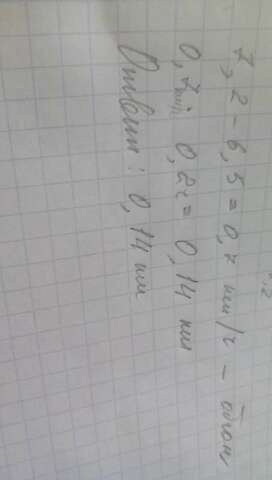 7,2 - 6,5 = 0,7 км/ч - обгон,
0,7 · 0,2ч = 0,14 км
Ответ: 0,14 км